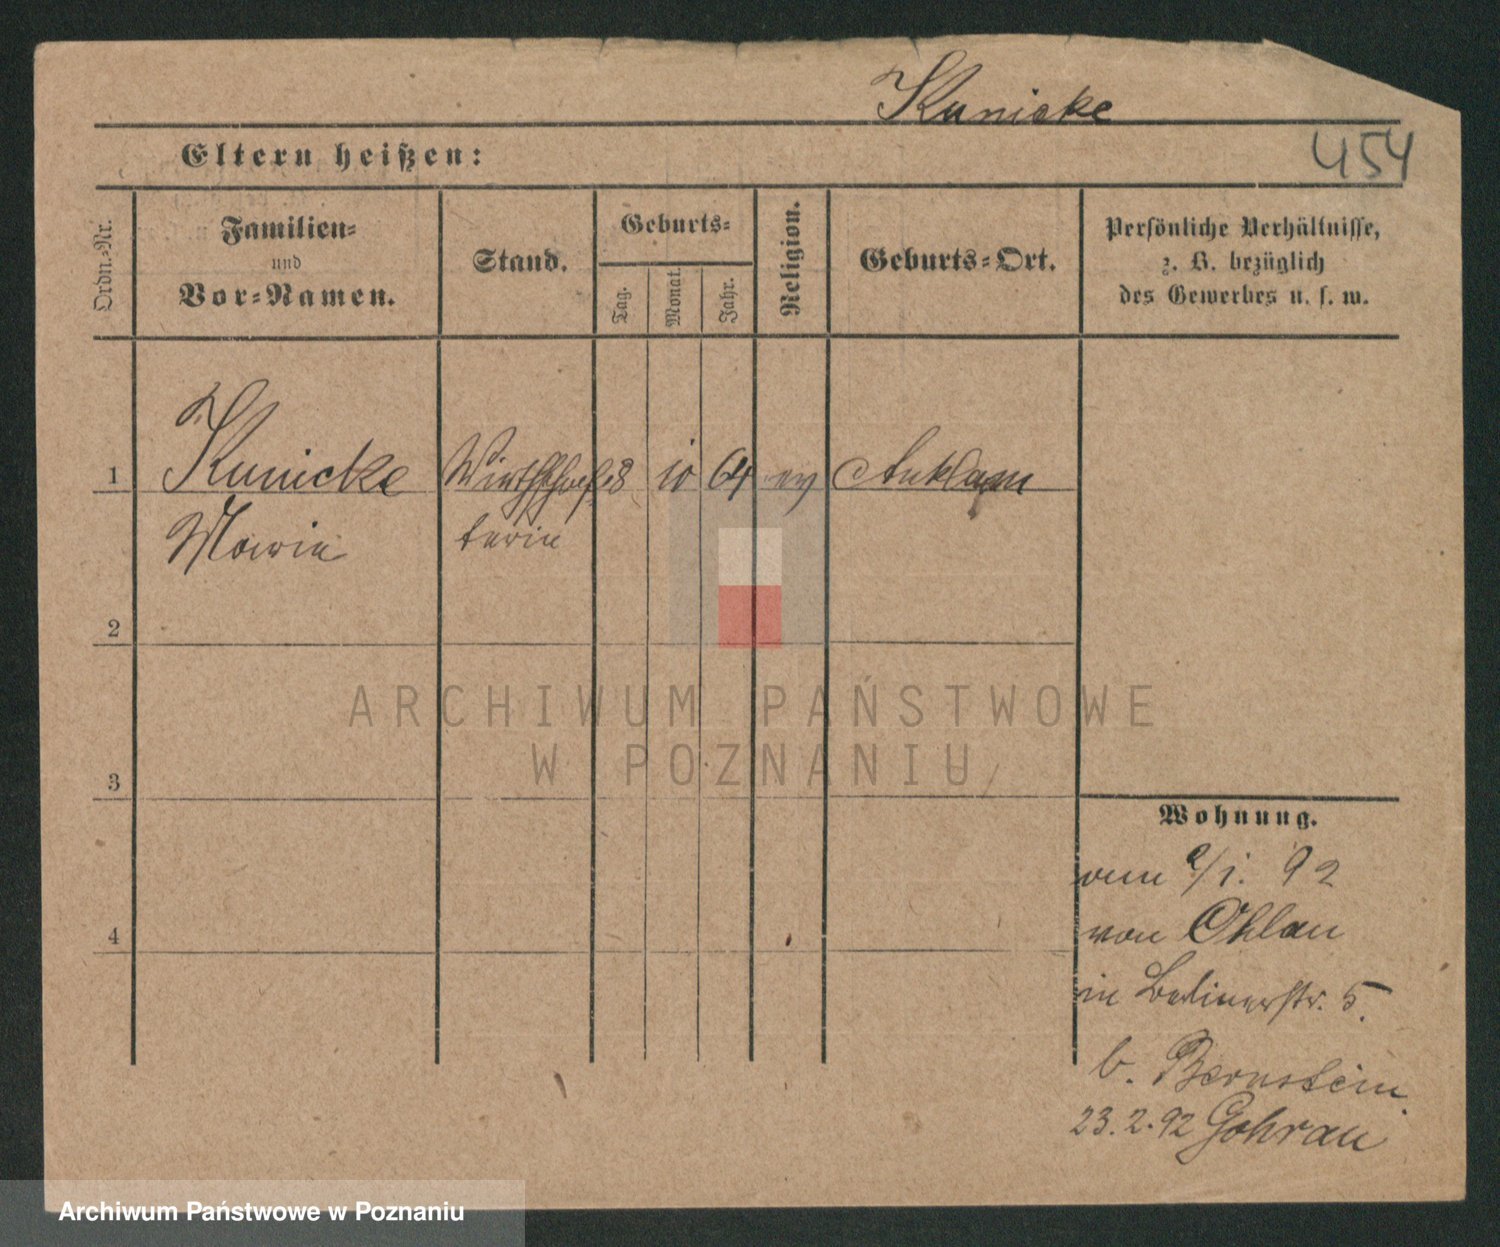 Kunicke
Eltern heißen:
454
Ordn.-Nr.
Familien-
und
Vor-Namen.
Stand.
Geburts-
Tag.
Monat.
Jahr.
Religion.
Geburts-Ort.
Persönliche Verhältnisse,
z. B. bezüglich
des Gewerbes u. s. w.
1
Kunicke
Marie
Wirthschaf-
terin
8 10 64 ev Anklam
2
3
4
ARCHIWUM PAŃSTWOWE
W POZNANIU
Wohnung.
vom 2/1. 92
von Ohlau
in Berlinerstr. 5.
b. Bernstein.
23.2.92 Gohrau
Archiwum Państwowe w Poznaniu